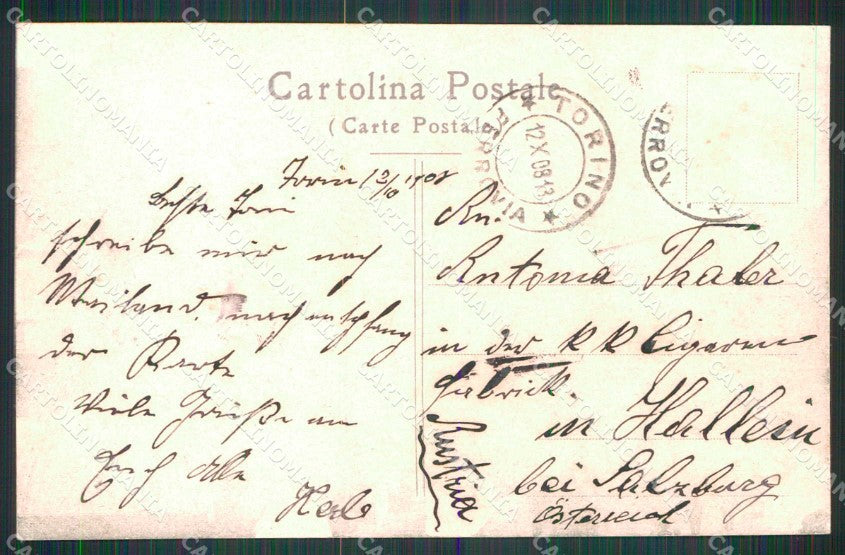 Cartolina Postale
(Carte Postale)
TORINO
FERROVIA
12 X 08 18
Torin 12/10 1908
beste Toni
schreibe mir nach
Mailand. nach entpfang
der Karte
Viele Grüße an
Euch alle
An.
Antonia Thaler
in der k k Cigaren
Fabrick.
in Hallein
bei Salzburg
Österreich
Austria
CARTOLINOMANIA